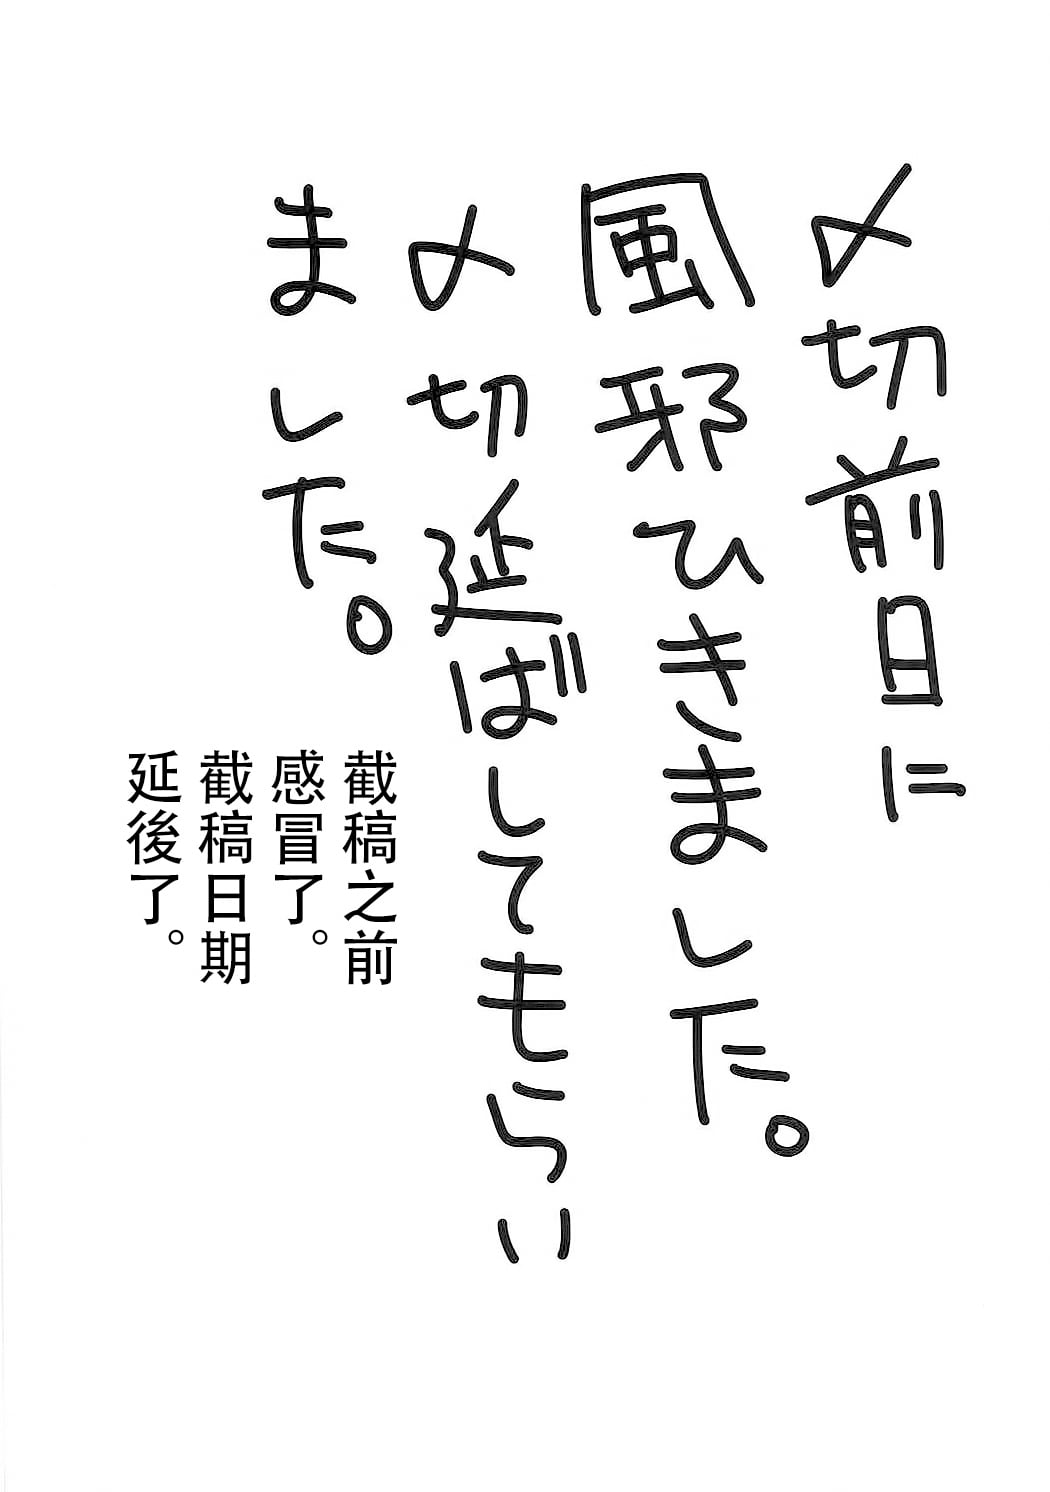 〆切前日に
風邪ひきました。
〆切延ばしてもらい
ました。
截稿之前
感冒了。
截稿日期
延後了。